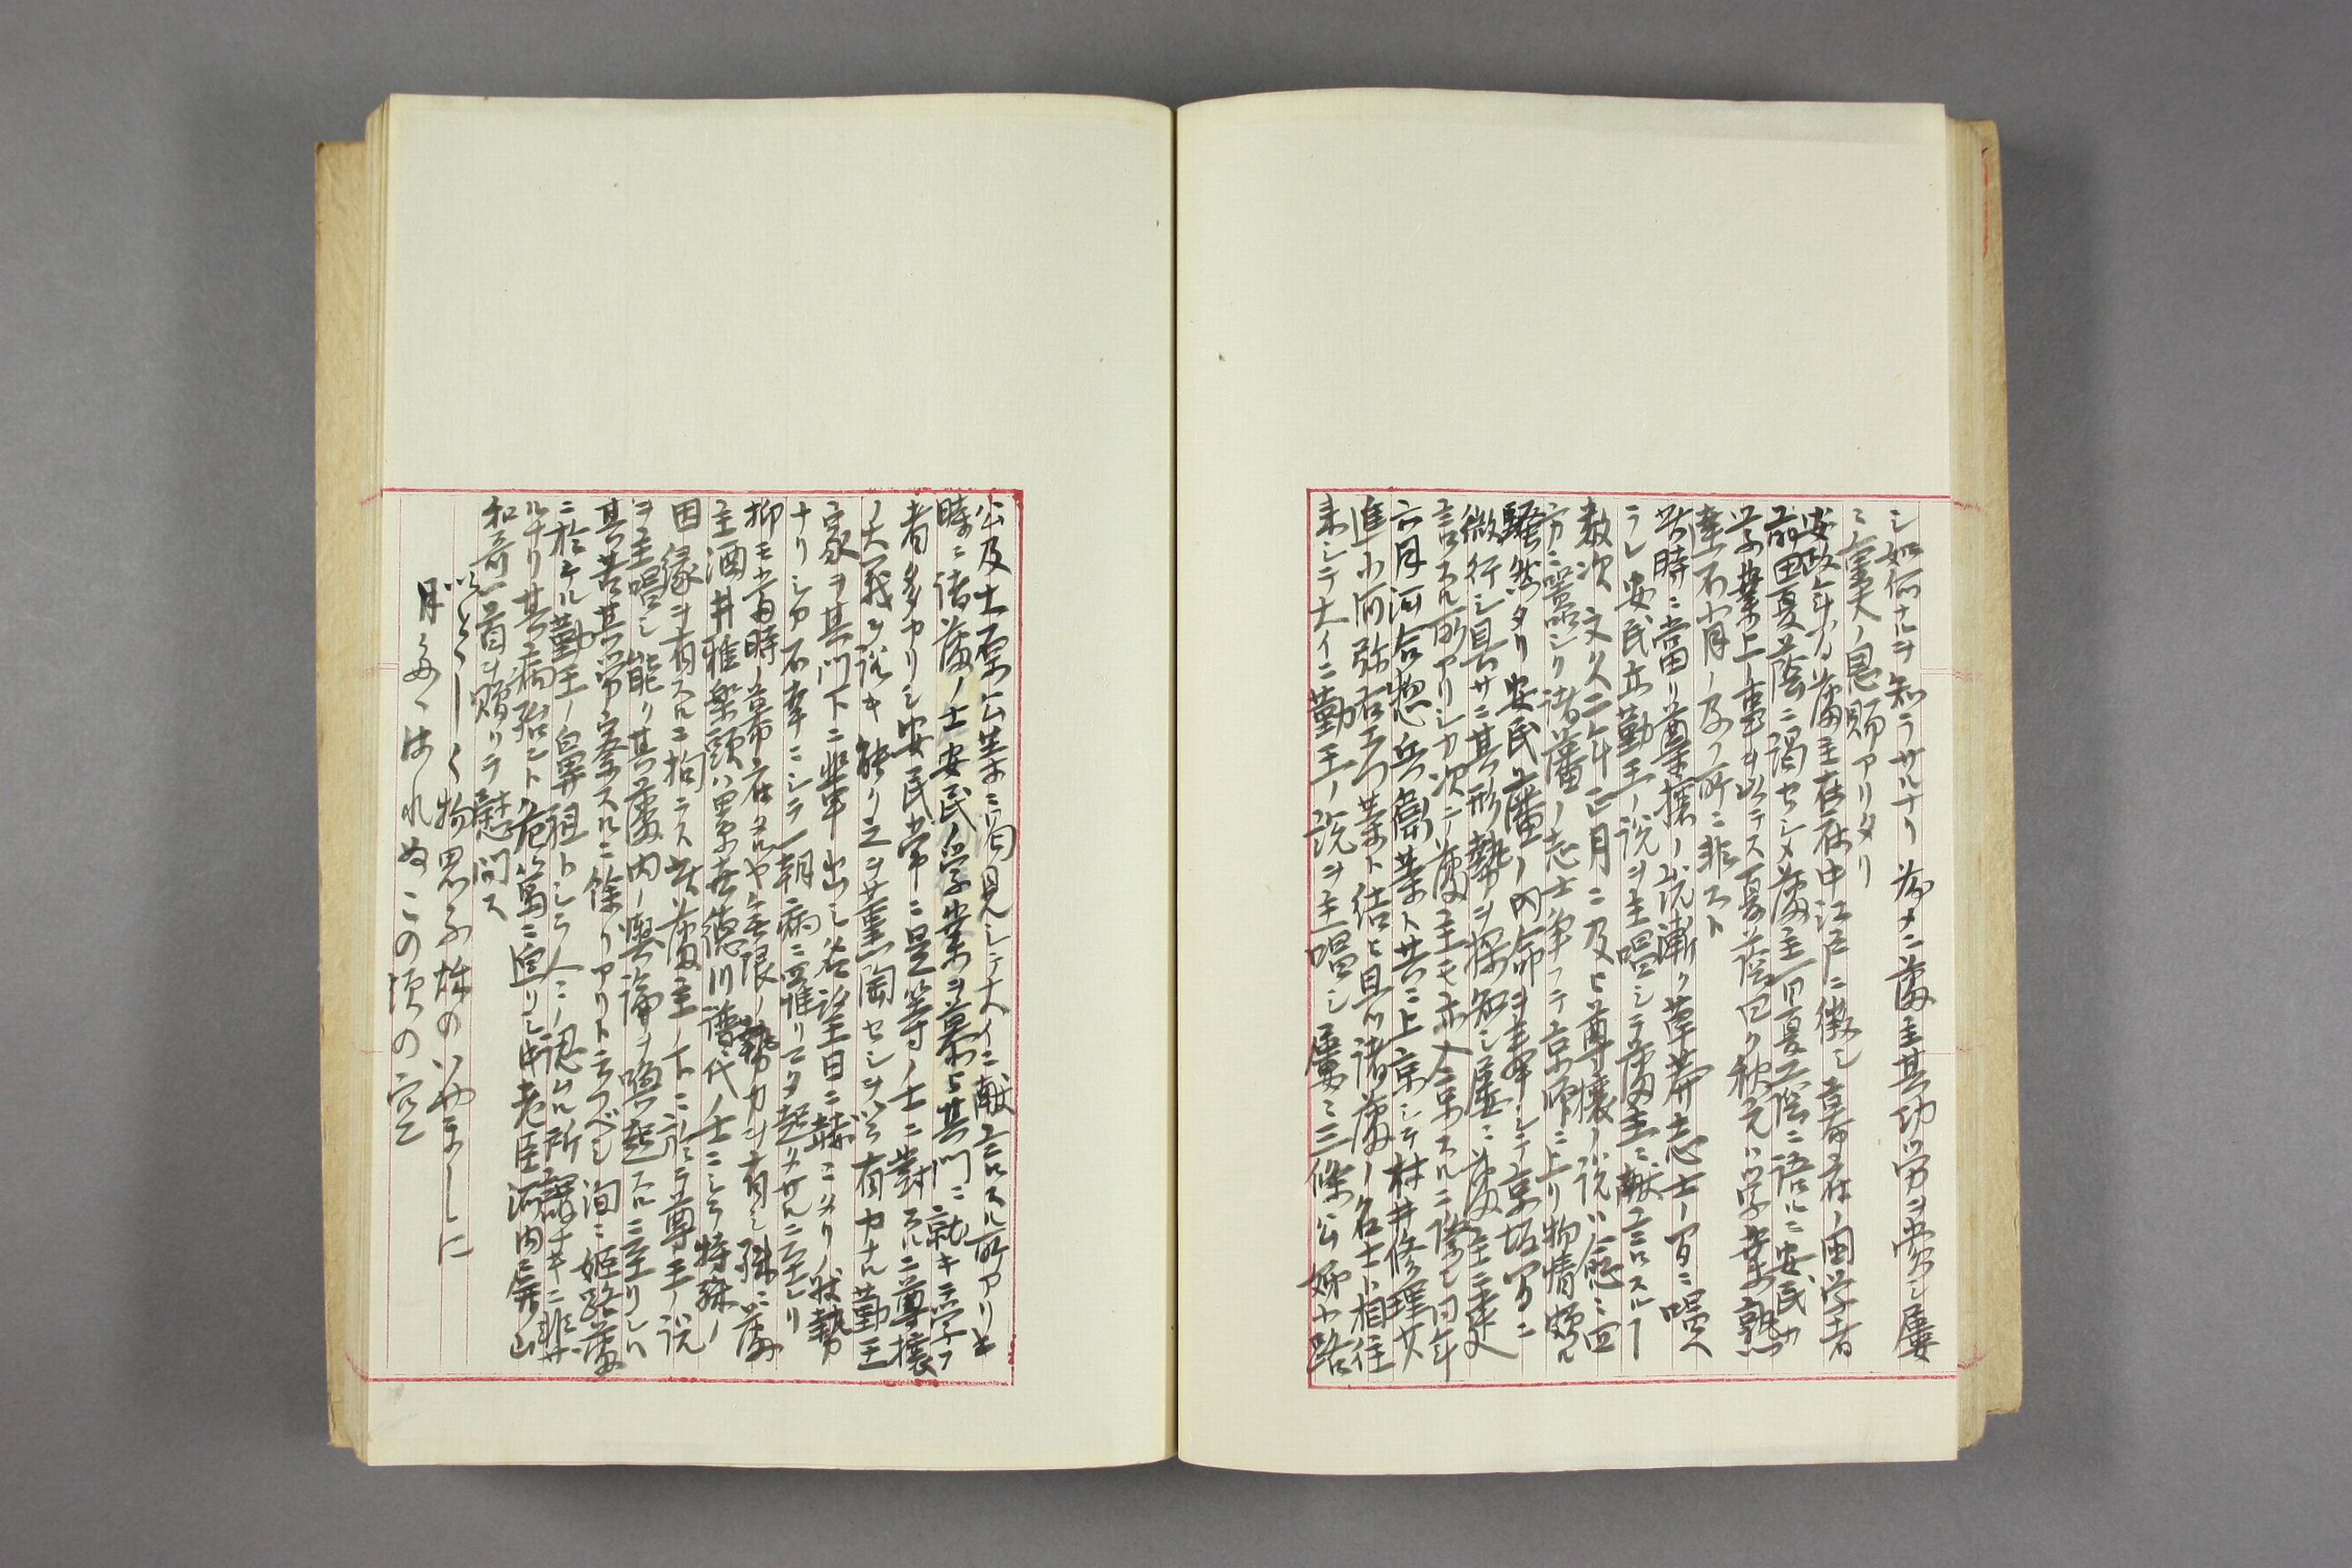 シ如何ナルヲ知ラサルナリ為メニ藩主其功労ヲ賞シ屡
ミ寡大ノ恩賜アリタリ
安政年間藩主在府中江戸ニ徴シ幕府在ノ国学者
前田夏蔭ニ謁セシメ藩主一日夏蔭ニ語ルニ安民カ
学業上ノ事ヲ以テス夏蔭曰ク秋元ハ学業熟
達不肖ノ及フ所ニ非スト
此時ニ当リ尊攘ノ説漸ク草莽志士ノ間ニ唱ヘ
ラレ安民亦勤王ノ説ヲ主唱シテ藩主ニ献言スルﾄ
数次文久二年正月ニ及ヒ尊攘ノ説ハ愈ミ四
方ニ囂シク諸藩ノ志士争フテ京師ニ上リ物情頗ル
騒然タリ安民ハ藩ノ内命ヲ奉シテ京坂間ニ
微行シ具サニ其形勢ヲ探知シ屡ミ藩主ニ建
言スル所アリシカ次テ藩主モ亦入京スルニ際シ同年
六月河合惣兵衛等ト共ニ上京シテ村井修理少
進小河弥右エ門等ト結ヒ且ハ諸藩ノ名士ト相往
来シテ大イニ勤王ノ説ヲ主唱シ屡ミ三條公姉小路
公及土原公等ニ謁見シテ大イニ献言スル所アリキ
時ニ諸藩ノ士安民ノ学業ヲ慕ヒ其門ニ就キテ学フ
者多カリシ安民常ニ是等ノ士ニ対スルニ尊攘
ノ大義ヲ説キ能ク之ヲ薫陶セシヲ以テ有力ナル勤王
家ヲ其門下ニ輩出シ名望日ニ赫ニタリノ状勢
ナリシカ不幸ニシテ一朝病ニ罹リマタ起タサルニ至レリ
抑モ当時ノ幕府タルヤ無限ノ勢力ヲ有シ殊ニ藩
主酒井雅楽頭ハ累世徳川譜代ノ士ニシテ特殊ノ
因縁ヲ有スルニ拘ラス此藩主ノ下ニ於テ尊王ノ説
ヲ主唱シ能ク其藩内ノ輿論ヲ喚起スルニ至リシハ
其苦其労察スルニ餘リアリト云フベシ洵ニ姫路藩
ニ於ケル勤王ノ鼻祖トシテ人ノ認ムル所謂ナキニ非サ
ルナリ其病殆ント危篤ニ迫リシ時老臣河内屏山
和哥一首ヲ贈リテ慰問ス
いとゝしく物思ふ秋のいやましに
月さへはれぬこの頃の空